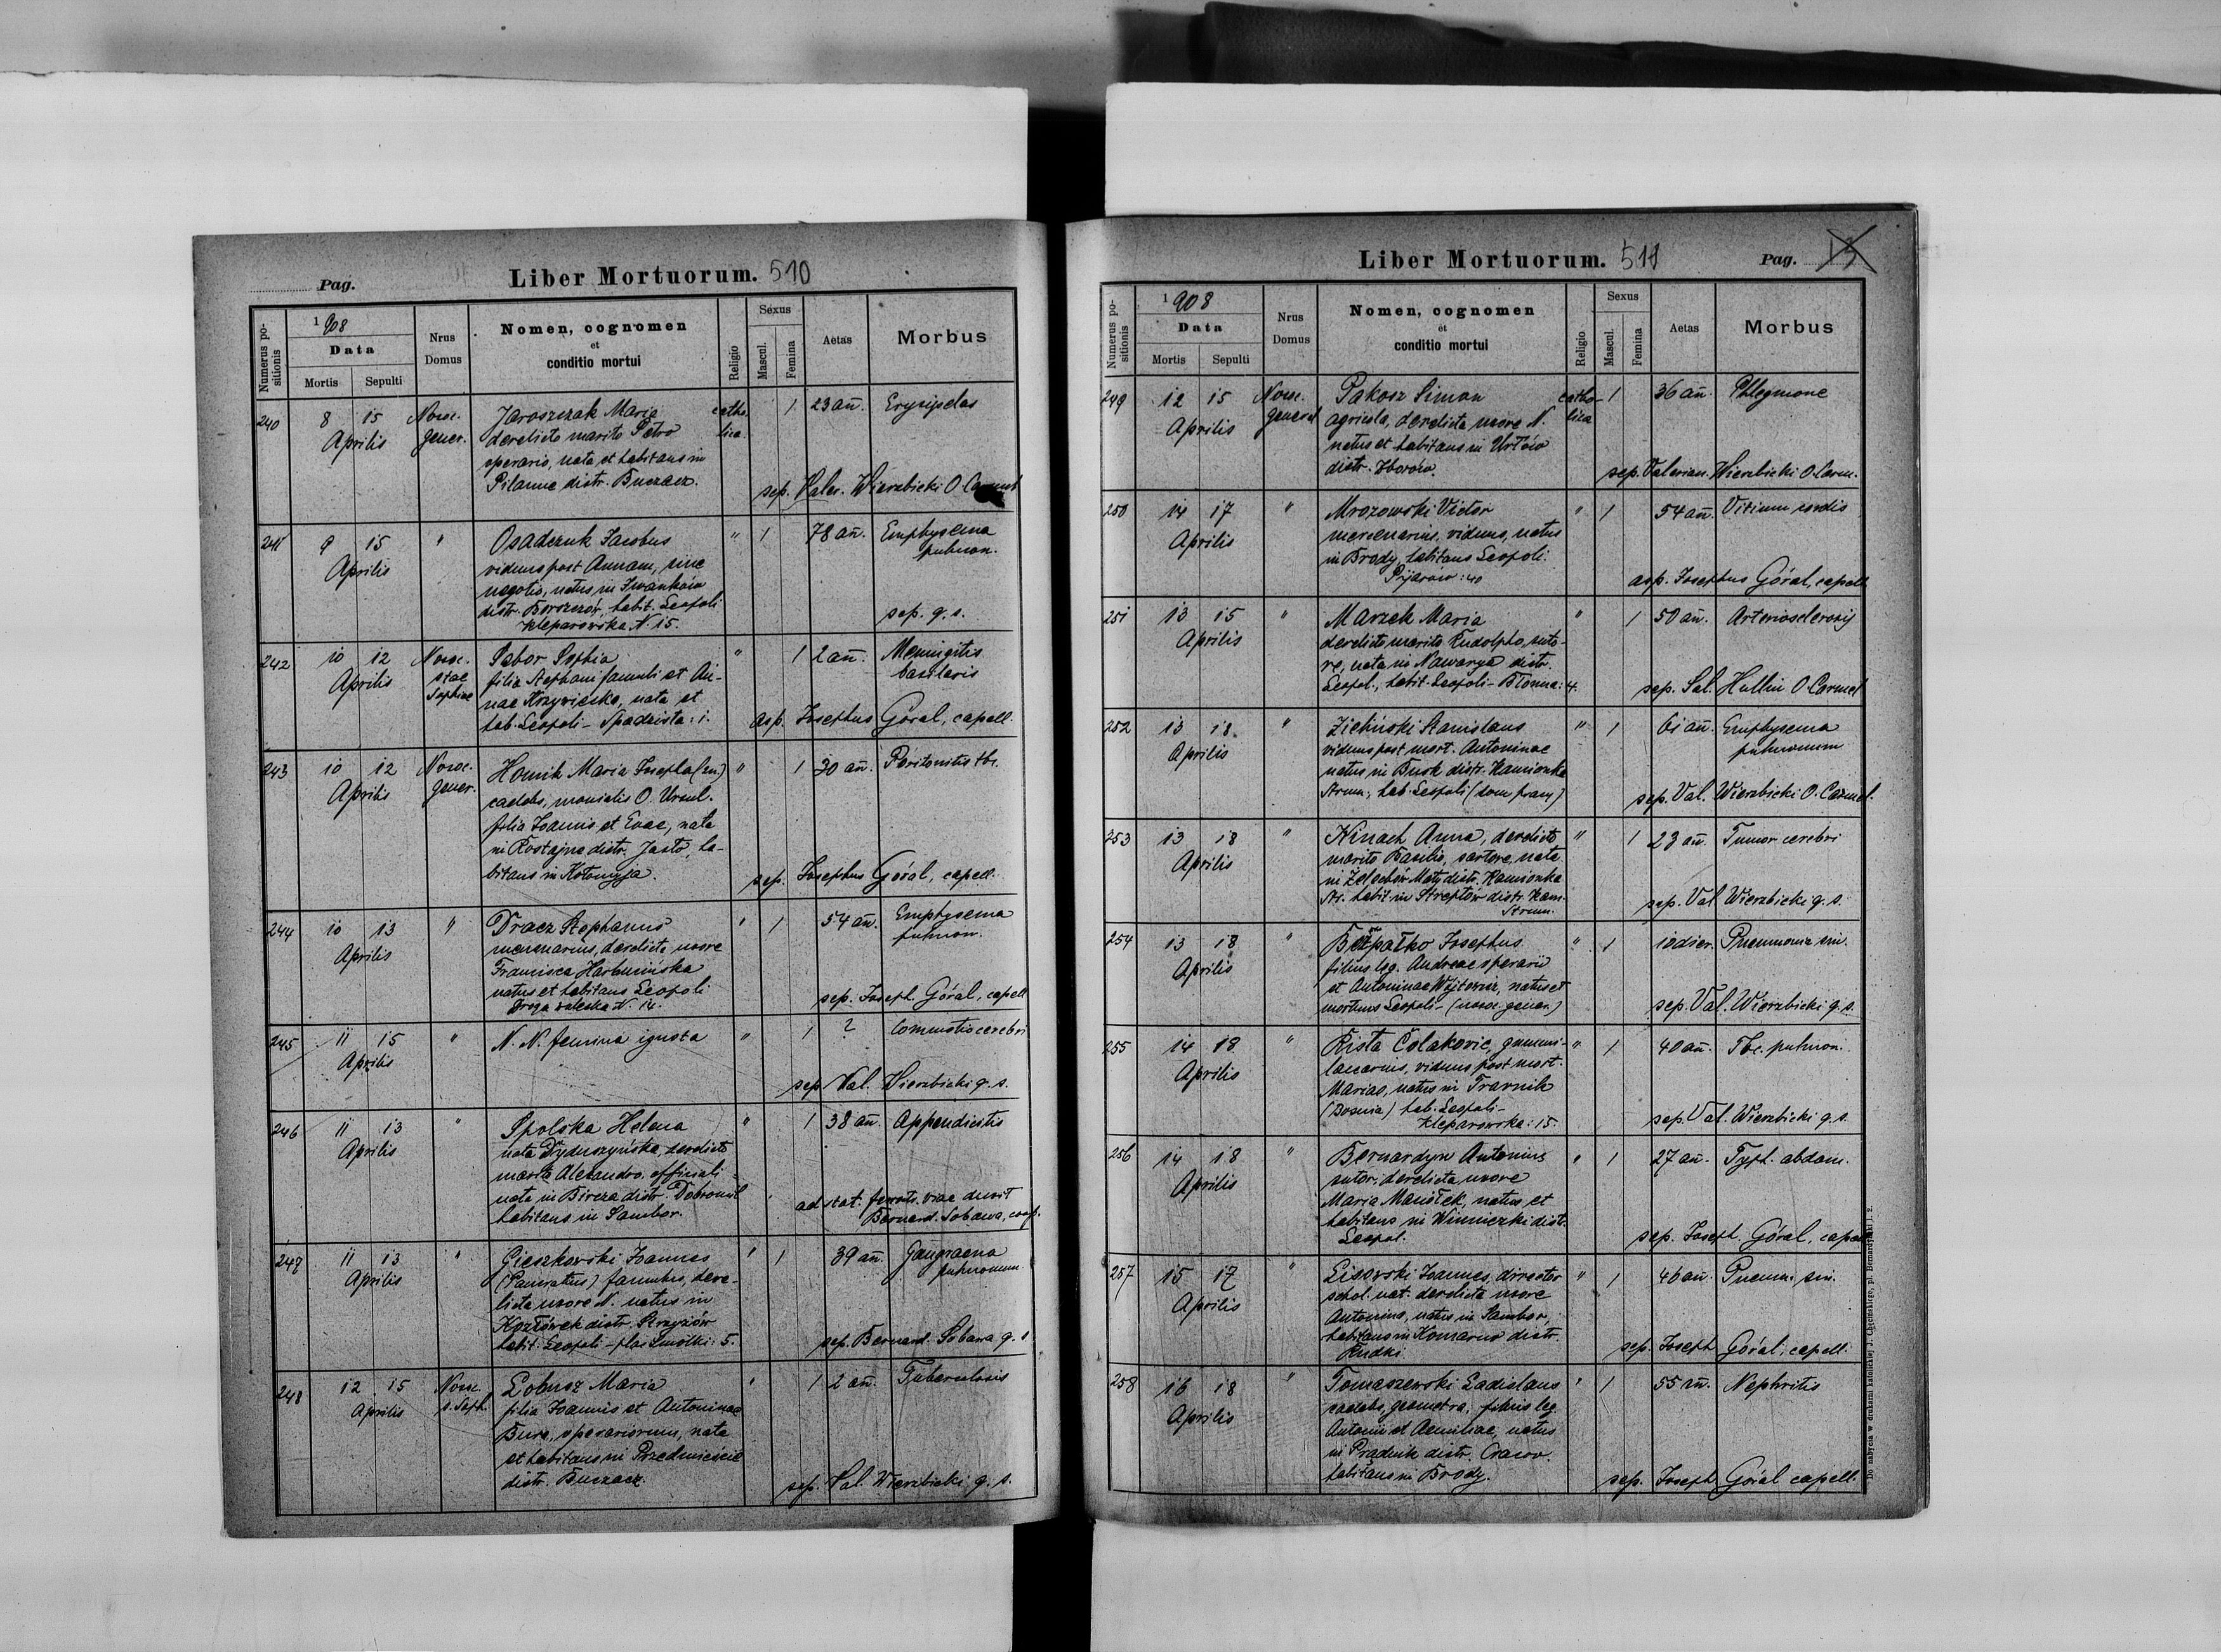 Pag.
Liber Mortuorum. 510
Numerus positionis
1908
Data
Mortis
Sepulti
Nrus Domus
Nomen, cognomen
et
conditio mortui
Religio
Sexus
Mascul.
Femina
Aetas
Morbus
240 8 15 Nosoc. Jaroszczak Maria catho- 1 23 añ. Erysipelas
Aprilis gener. derelicto marito Petro lica.
operario, nata et habitans in
Pilawce distr. Buczacz.
sep. Valer. Wierzbicki O. Carmel
241 9 15 " Osadczuk Jacobus " 1 78 añ. Emphysema
Aprilis viduus post Annam, sine pulmon.
negotio, natus in Iwanków
distr. Borszczów, habit. Leopoli
Kleparowska N. 15.
sep. q. s.
242 10 12 Nosoc. Sabor Sophia " 1 2 añ. Meningitis
Aprilis stae filia Stephani famuli et An- basilaris
Sophiae nae Krzywieska, nata et
hab. Leopoli - Spadzista: 1.
asp. Josephus Góral, capell.
243 10 12 Nosoc. Homik Maria Josepha " 1 30 añ. Peritonitis tbc.
Aprilis gener. caelebs, monialis O. Ursul.
filia Joannis et Evae, nata
in Rostajne distr. Jasło, ha-
bitans in Kołomyja.
sep. Josephus Góral, capell.
244 10 13 " Dracz Stephanus " 1 54 añ. Emphysema
Aprilis mercenarius, derelicta uxore pulmon.
Francisca Harburińska
natus et habitans Leopoli
Droga wulecka N. 14.
sep. Joseph. Góral, capell
245 11 15 " N. N. femina ignota " 1 ? Commotio cerebri
Aprilis
sep. Val. Wierzbicki q. s.
246 11 13 " Spolska Helena " 1 38 añ. Appendicitis
Aprilis nata Dyduszyńska, derelicto
marito Alexandro, officiali -
nata in Bircza distr. Dobromil
habitans in Sambor.
ad stat. ferrats. viae duxit
Bernard. Sobawa, coop.
247 11 13 " Gieszkowski Joannes " 1 39 añ. Gangraena
Aprilis (Pancratius) famulus, dere- pulmonum
licta uxore N. natus in
Kozłówek distr. Strzyżów
habit. Leopoli - plac Smolki: 5.
sep. Bernard. Sobawa q. s
248 12 15 Nosoc. Łobusz Maria " 1 2 añ. Tuberculosis
Aprilis s. Soph. filia Joannis et Antoninae
Bura, operariorum, nata
et habitans in Przedmieście
distr. Buczacz.
sep. Val. Wierzbicki q. s.
Liber Mortuorum. 511
Pag.
Numerus positionis
1908
Data
Mortis
Sepulti
Nrus Domus
Nomen, cognomen
et
conditio mortui
Religio
Sexus
Mascul.
Femina
Aetas
Morbus
249 12 15 Nosoc. Pakosz Simon catho- 1 36 añ. Phlegmone
Aprilis general agricola, derelicta uxore N. lica
natus et habitans in Urłów
distr. Zborów.
sep. Valerian. Wierzbicki O. Carm.
250 14 17 " Mrozowski Victor " 1 54 añ. Vitium cordis
Aprilis mercenarius, viduus, natus
in Brody, habitans Leopoli.
Pijarów: 40
asp. Josephus Góral, capell
251 13 15 " Marzek Maria " 1 50 añ. Arteriosclerosis
Aprilis derelicto marito Rudolpho, suto-
re, nata in Nawarya distr.
Leopol., habit. Leopoli - Błonna: 4.
sep. Sal. Hullin O. Carmel
252 13 18. " Zieliński Stanislaus " 1 61 añ. Emphysema
Aprilis viduus post mort. Antoninae pulmonum
natus in Busk distr. Kamionka
Strum., hab. Leopoli (dom pracy)
sep. Val. Wierzbicki O. Carmel.
253 13 18 " Kinach Anna, derelicto " 1 23 añ. Tumor cerebri
Aprilis marito Basilio, sartore, nata
in Żelechów Mały distr. Kamionka
Str. habit. in Streptów distr. Kam.
Strum.
sep. Val Wierzbicki q. s.
254 13 18 " Bezpałko Josephus " 1 10 dier. Pneumonia sin.
Aprilis filius leg. Andreae operarii
et Antoninae Wojtowicz, natus et
mortuus Leopoli - (nosoc. gener.)
sep. Val. Wierzbicki q. s.
255 14 18 " Rista Colakovic, gummi- " 1 40 añ. Tbc. pulmon.
Aprilis laccarius, viduus post mort.
Mariae, natus in Travnik
(Bosnia) hab. Leopoli -
Kleparowska: 15.
sep. Val. Wierzbicki q. s.
256 14 18 " Bernardyn Antonius " 1 27 añ. Typh. abdom.
Aprilis sutor, derelicta uxore
Maria Maniołek, natus et
habitans in Winniczki distr.
Leopol.
sep. Joseph. Góral, capell
257 15 17 " Lisowski Joannes, director " 1 46 añ. Pneum. sin.
Aprilis schol. nat. derelicta uxore
Antonina, natus in Sambor,
habitans in Komarno distr.
Rudki.
sep. Joseph Góral, capell.
258 16 18 " Tomaszewski Ladislaus " 1 55 añ. Nephritis
Aprilis caelebs, geometra, filius leg.
Antonii et Aemiliae, natus
in Prądnik distr. Cracov.
habitans in Brody.
sep. Joseph Góral capell.
Do nabycia w drukarni katolickiej J. Chęcińskiego, pl. Bernardyński l. 2.